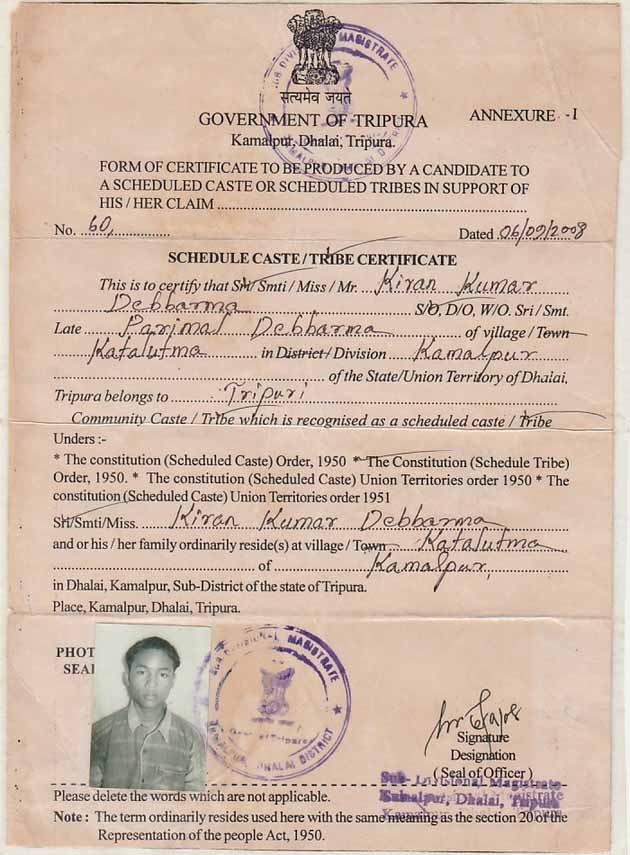 सत्यमेव जयते
GOVERNMENT OF TRIPURA
ANNEXURE -I
Kamalpur, Dhalai, Tripura.
FORM OF CERTIFICATE TO BE PRODUCED BY A CANDIDATE TO
A SCHEDULED CASTE OR SCHEDULED TRIBES IN SUPPORT OF
HIS / HER CLAIM
No. 60, Dated 06/09/2008
SCHEDULE CASTE / TRIBE CERTIFICATE
This is to certify that Sri/ Smti / Miss / Mr. Kiran Kumar
Debbarma S/O, D/O, W/O. Sri / Smt.
Late Parimal Debbarma of village / Town
Katalutma in District / Division Kamalpur
of the State/Union Territory of Dhalai,
Tripura belongs to Tripuri
Community Caste / Tribe which is recognised as a scheduled caste / Tribe
Unders :-
* The constitution (Scheduled Caste) Order, 1950 * The Constitution (Schedule Tribe)
Order, 1950. * The constitution (Scheduled Caste) Union Territories order 1950 * The
constitution (Scheduled Caste) Union Territories order 1951
Sri/Smti/Miss. Kiran Kumar Debbarma
and or his / her family ordinarily reside(s) at village / Town Katalutma
of Kamalpur,
in Dhalai, Kamalpur, Sub-District of the state of Tripura.
Place, Kamalpur, Dhalai, Tripura.
PHOT
SEAL
SUB DIVISIONAL MAGISTRATE
KAMALPUR, DHALAI DISTRICT
Signature
Designation
( Seal of Officer )
Sub-Divisional Magistrate
Kamalpur, Dhalai, Tripura
Please delete the words which are not applicable.
Note : The term ordinarily resides used here with the same meaning as the section 20 of the
Representation of the people Act, 1950.